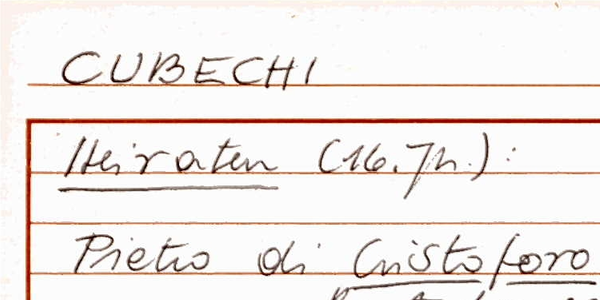 CUBECHI
Heiraten (16. Jh.):
Pietro di Cristoforo